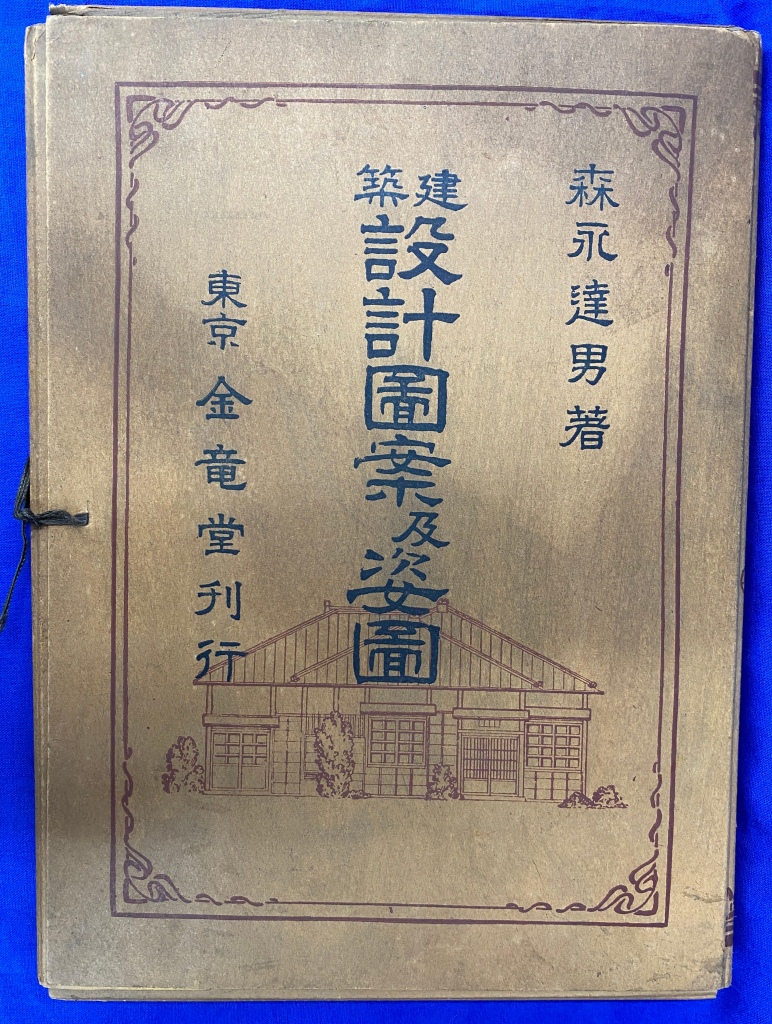 森永達男著
建築設計圖案及姿圖
東京 金竜堂刊行